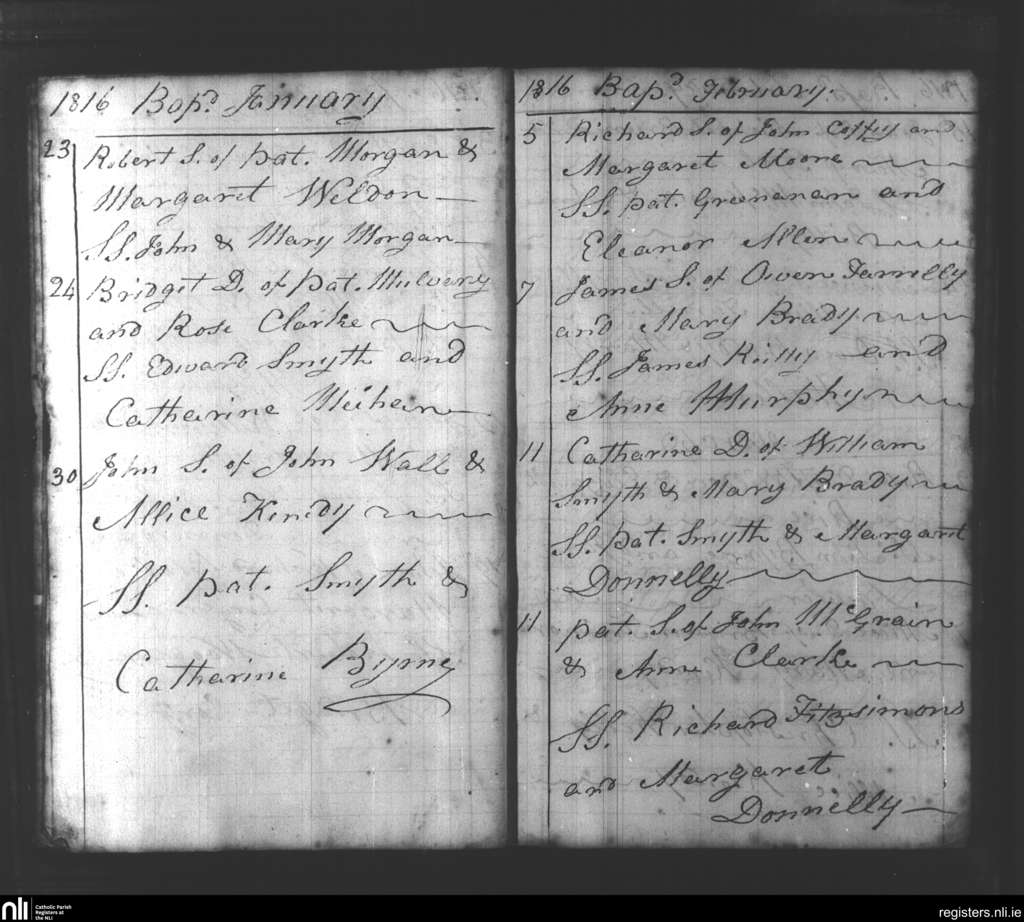 1816 Bapd. January
23 Robert S. of Pat. Morgan &
Margaret Weldon
SS. John & Mary Morgan
24 Bridget D. of Pat. Mulvany
and Rose Clarke
SS. Edward Smyth and
Catharine Meihan
30 John S. of John Wall &
Allice Kindy
SS. Pat. Smyth &
Catharine Byrne
1816 Bapd. February.
5 Richard S. of John Coffy and
Margaret Moore
SS. Pat. Greenanan and
Eleanor Allen
7 James S. of Owen Farrelly
and Mary Brady
SS. James Reilly and
Anne Murphy
11 Catharine D. of William
Smyth & Mary Brady
SS. Pat. Smyth & Margaret
Donnelly
11 Pat. S. of John McGrain
& Anne Clarke
SS. Richard Fitzsimons
and Margaret
Donnelly
nli Catholic Parish
Registers at
the NLI
registers.nli.ie